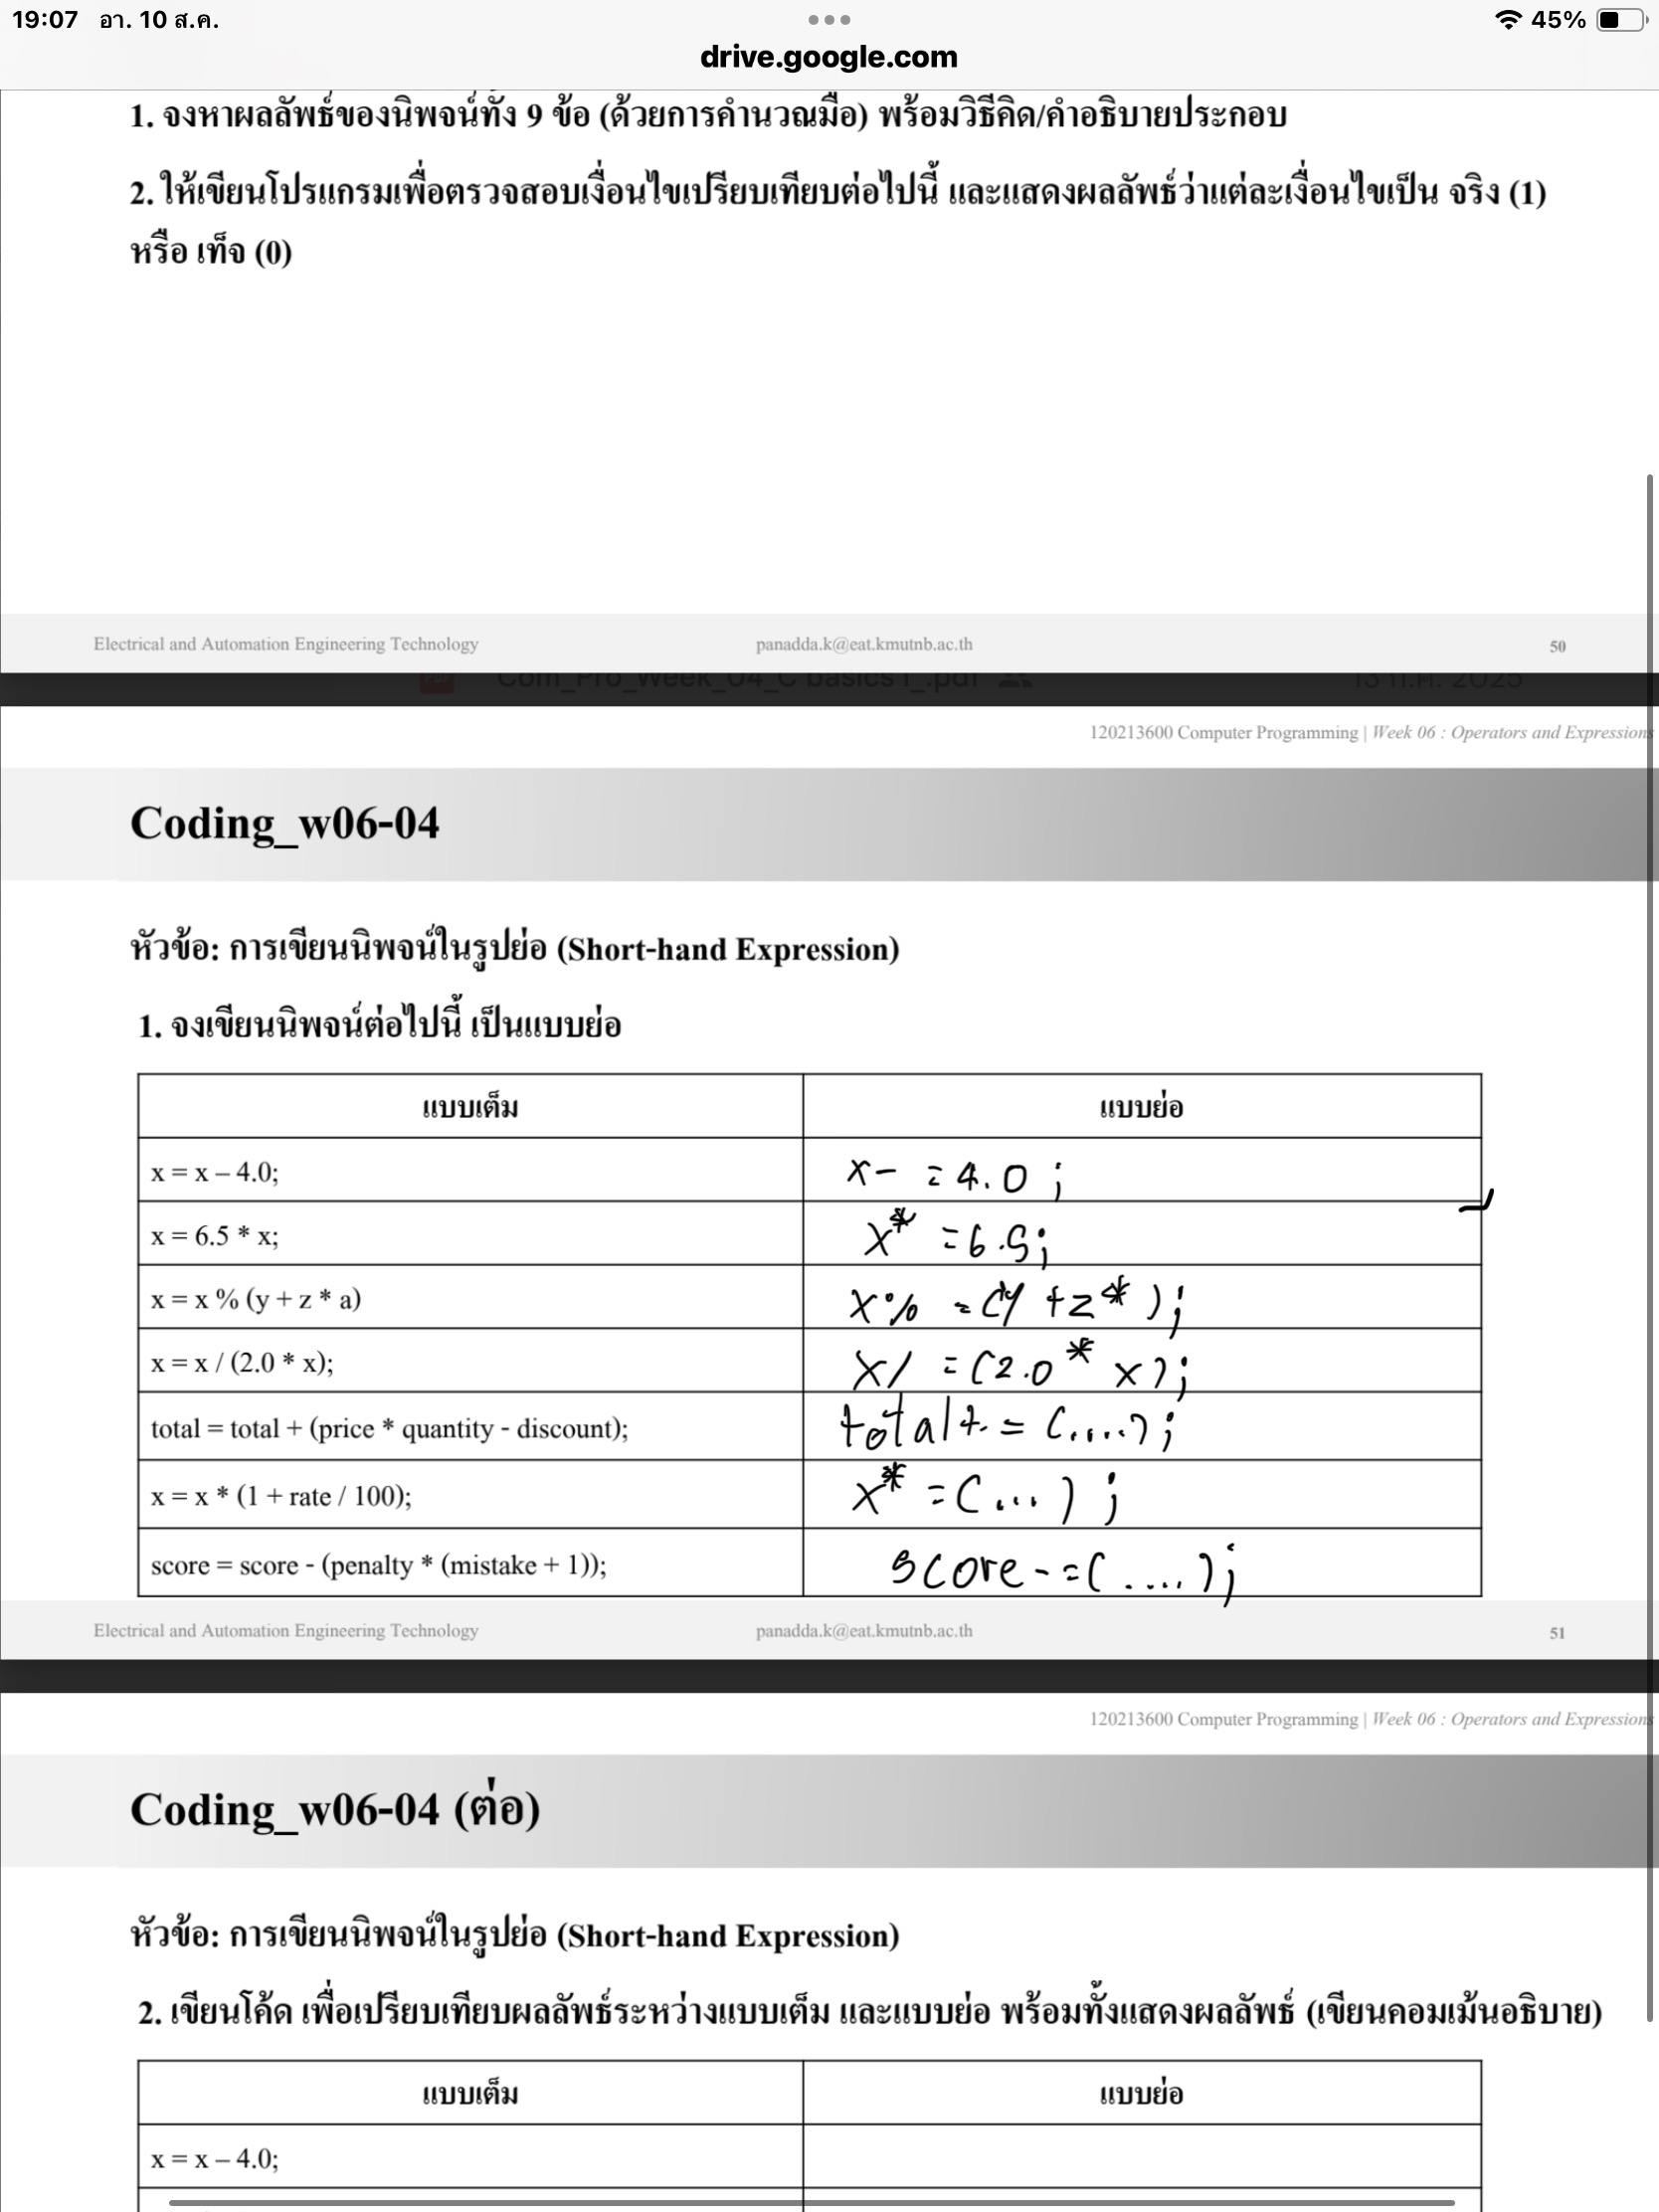 19:07 อา. 10 ส.ค.
45%
drive.google.com
1. จงหาผลลัพธ์ของนิพจน์ทั้ง 9 ข้อ (ด้วยการคำนวณมือ) พร้อมวิธีคิด/คำอธิบายประกอบ
2. ให้เขียนโปรแกรมเพื่อตรวจสอบเงื่อนไขเปรียบเทียบต่อไปนี้ และแสดงผลลัพธ์ว่าแต่ละเงื่อนไขเป็น จริง (1)
หรือ เท็จ (0)
Electrical and Automation Engineering Technology panadda.k@eat.kmutnb.ac.th 50
PDF Com_Pro_Week_04_C basics I_.pdf 13 ก.ค. 2025
120213600 Computer Programming | Week 06 : Operators and Expressions
Coding_w06-04
หัวข้อ: การเขียนนิพจน์ในรูปย่อ (Short-hand Expression)
1. จงเขียนนิพจน์ต่อไปนี้ เป็นแบบย่อ
แบบเต็ม แบบย่อ
x = x – 4.0; x- = 4.0 ;
x = 6.5 * x; x* =6.5;
x = x % (y + z * a) x% =(y +z* );
x = x / (2.0 * x); x/ =(2.0* x);
total = total + (price * quantity - discount); total+ = (.....);
x = x * (1 + rate / 100); x* =(...) ;
score = score - (penalty * (mistake + 1)); score-=(....);
Electrical and Automation Engineering Technology panadda.k@eat.kmutnb.ac.th 51
120213600 Computer Programming | Week 06 : Operators and Expressions
Coding_w06-04 (ต่อ)
หัวข้อ: การเขียนนิพจน์ในรูปย่อ (Short-hand Expression)
2. เขียนโค้ด เพื่อเปรียบเทียบผลลัพธ์ระหว่างแบบเต็ม และแบบย่อ พร้อมทั้งแสดงผลลัพธ์ (เขียนคอมเม้นอธิบาย)
แบบเต็ม แบบย่อ
x = x – 4.0;